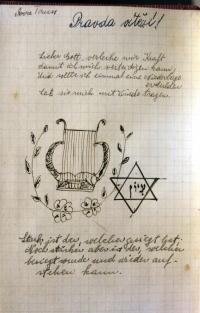 Pravda vítězí!
Lieber Gott, verleihe mir Kraft
damit ich mich verteidigen kann,
Und sollte ich einmal eine Niederlage
erdulden
Laß sie mich mit Würde tragen.
ציון
Stark ist der, welcher gesiegt hat,
doch stärker aber ist der, welcher
besiegt wurde und wieder auf-
stehen kann.